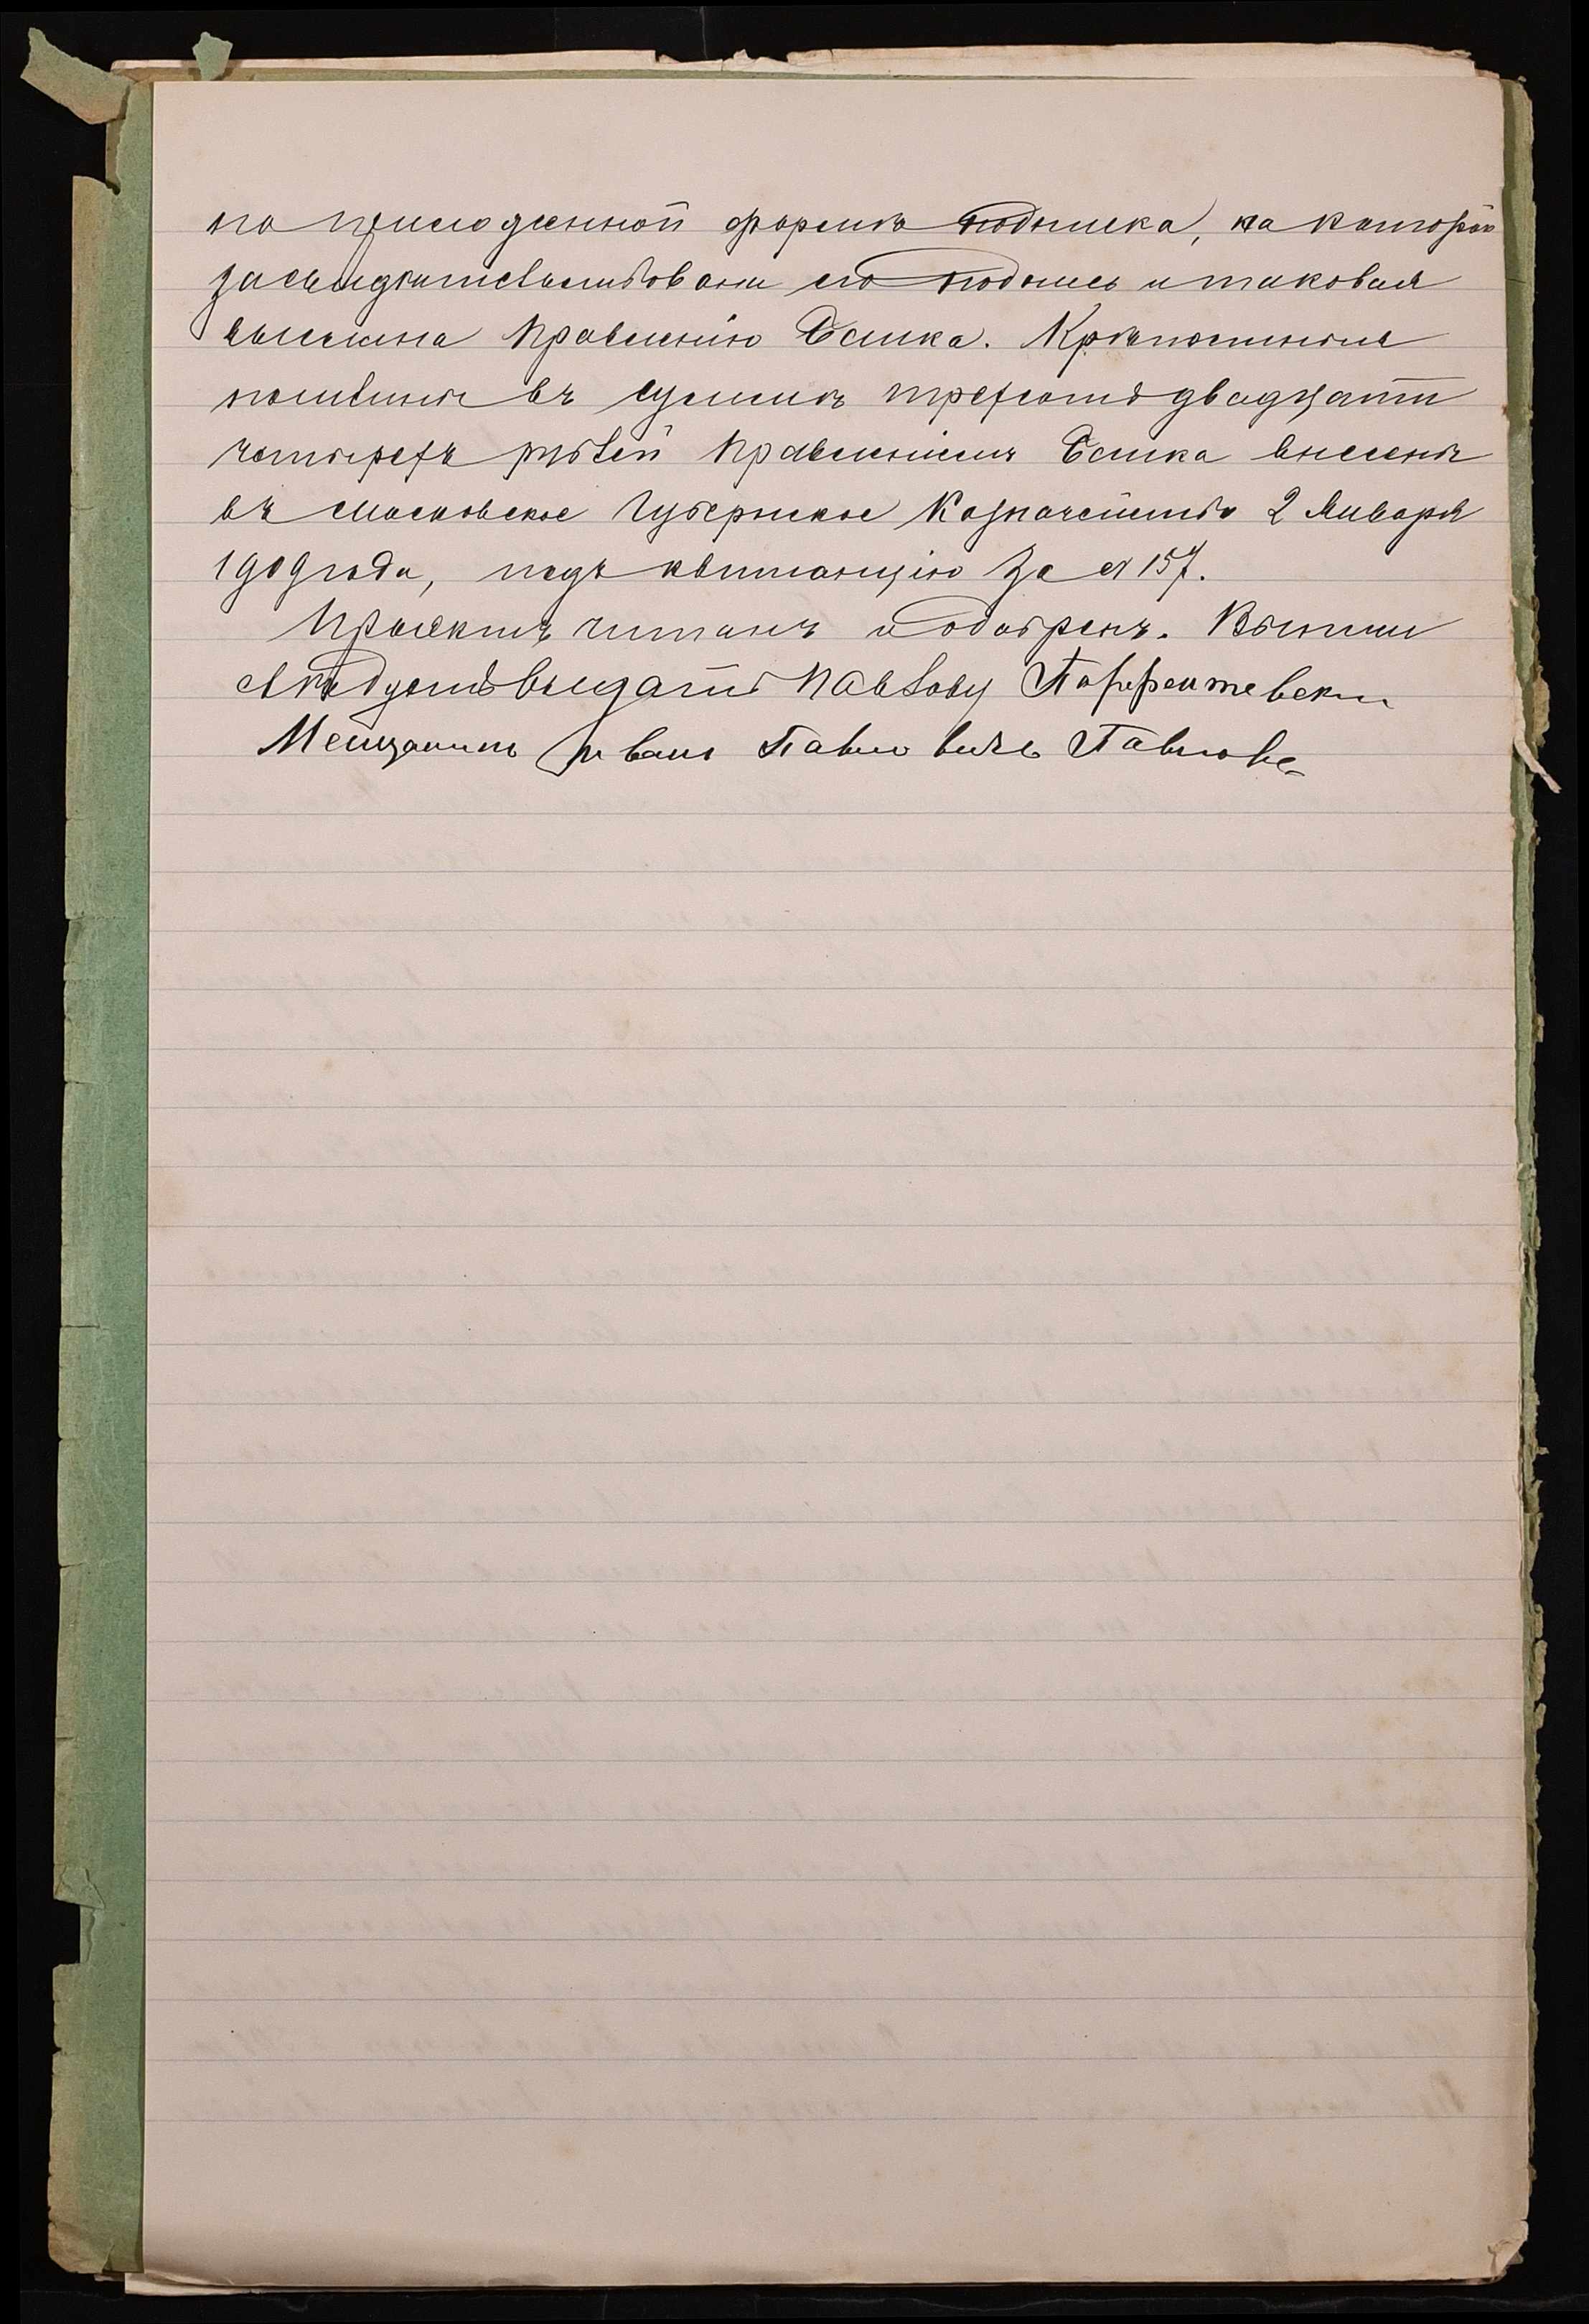 по приложенной формѣ подписка, на которой
засвидѣтельствована его подпись и таковая
выслана Правленію Банка. Крѣпостныя
пошлины въ суммѣ трехсотъ двадцати
четырехъ рублей Правленіемъ Банка внесены
въ Московское Губернское Казначейство 2 Января
1909 года, подъ квитанцію за № 157.
Проектъ читанъ и одобренъ. Выпись
слѣдуетъ выдать Павлову
Мещанинъ Иванъ Павловичъ Павловъ